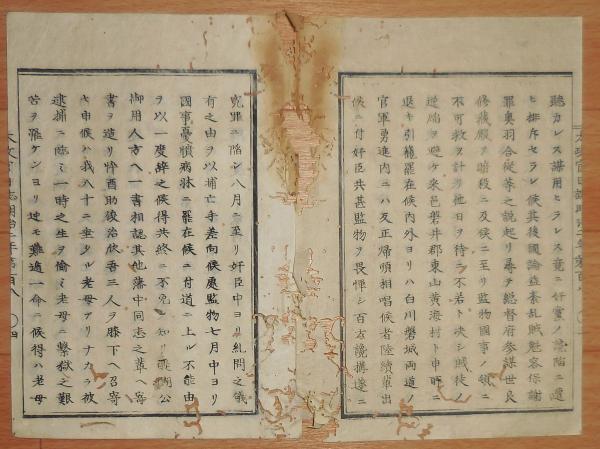 聽カレス謀用ヒラレス竟ニ奸黨ノ讒陷ニ遭
ヒ排斥セラレ候其後國論益紊乱賊魁容保謝
罪奥羽合從等之説起リ尋テ總督府参謀世良
修藏殿ヲ暗殺ニ及候ニ至リ監物國事ノ
不可救ヲ計リ他日ヲ待ニ不若ト决シ賊徒ノ
ヲ避ケ来邑磐井郡東山黄海村ト申所ニ
退キ引籠罷在候内外ヨリハ白川磐城両道ノ
官軍勇進内ニハ反正帰順相唱候者陸續輩出
候ニ付奸臣共甚監物ヲ畏憚シ百方讒搆遂ニ
冤罪ニ陷シ八月ニ至リ奸臣中ヨリ糺問之儀
有之由ヲ以捕亡等差向候處監物七月中ヨリ
國事憂憤病牀ニ罷在候ニ付道ニ上ル不能由
ヲ以一度辞之候得共終ニ不免ヲ知リ
御用人方ヘ一書相認其他藩中同志之輩ヘ寄
書ヲ造リ忰酉助後治依吾三人ヲ膝下ヘ召寄
セ申候ハ我八十ニ垂タル老母アリナカラ彼
逮捕ニ臨ミ一時之生ヲ偷ミ老母ニ繋獄之艱
苦ヲ罹ケンヨリ迚モ難遁一命ニ候得ハ老母